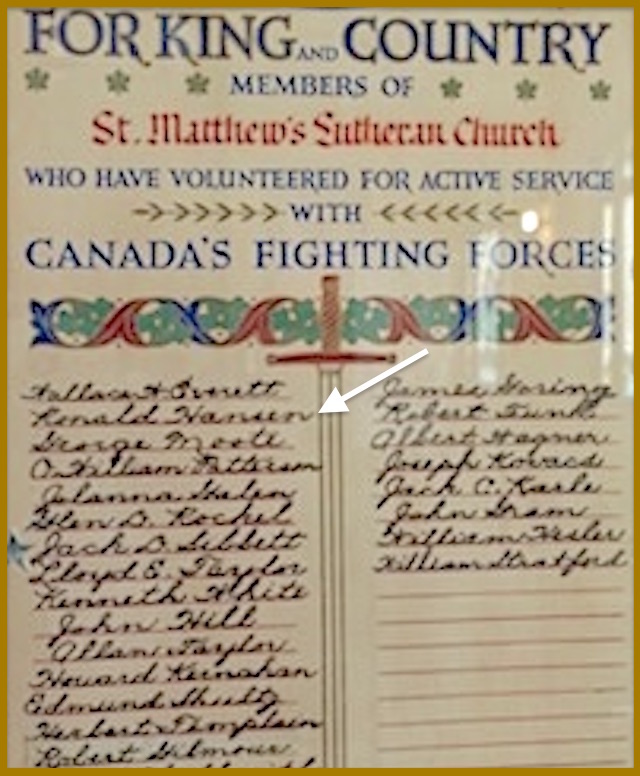 FOR KING AND COUNTRY
MEMBERS OF
St. Matthew's Lutheran Church
WHO HAVE VOLUNTEERED FOR ACTIVE SERVICE
WITH
CANADA'S FIGHTING FORCES
Wallace H Everett
Ronald Hansen
George Moote
O. William Patterson
Glen D. Rockel
Jack D. Sibbett
Lloyd E. Taylor
Kenneth White
John Hill
Allan Taylor
Howard Kernahan
Edmund Shultz
Herbert
Robert Gilmour
James Goring
Robert Funk
Albert Wagner
Joseph Kovacs
Jack C. Karle
John Gram
William Hesler
William Stratford